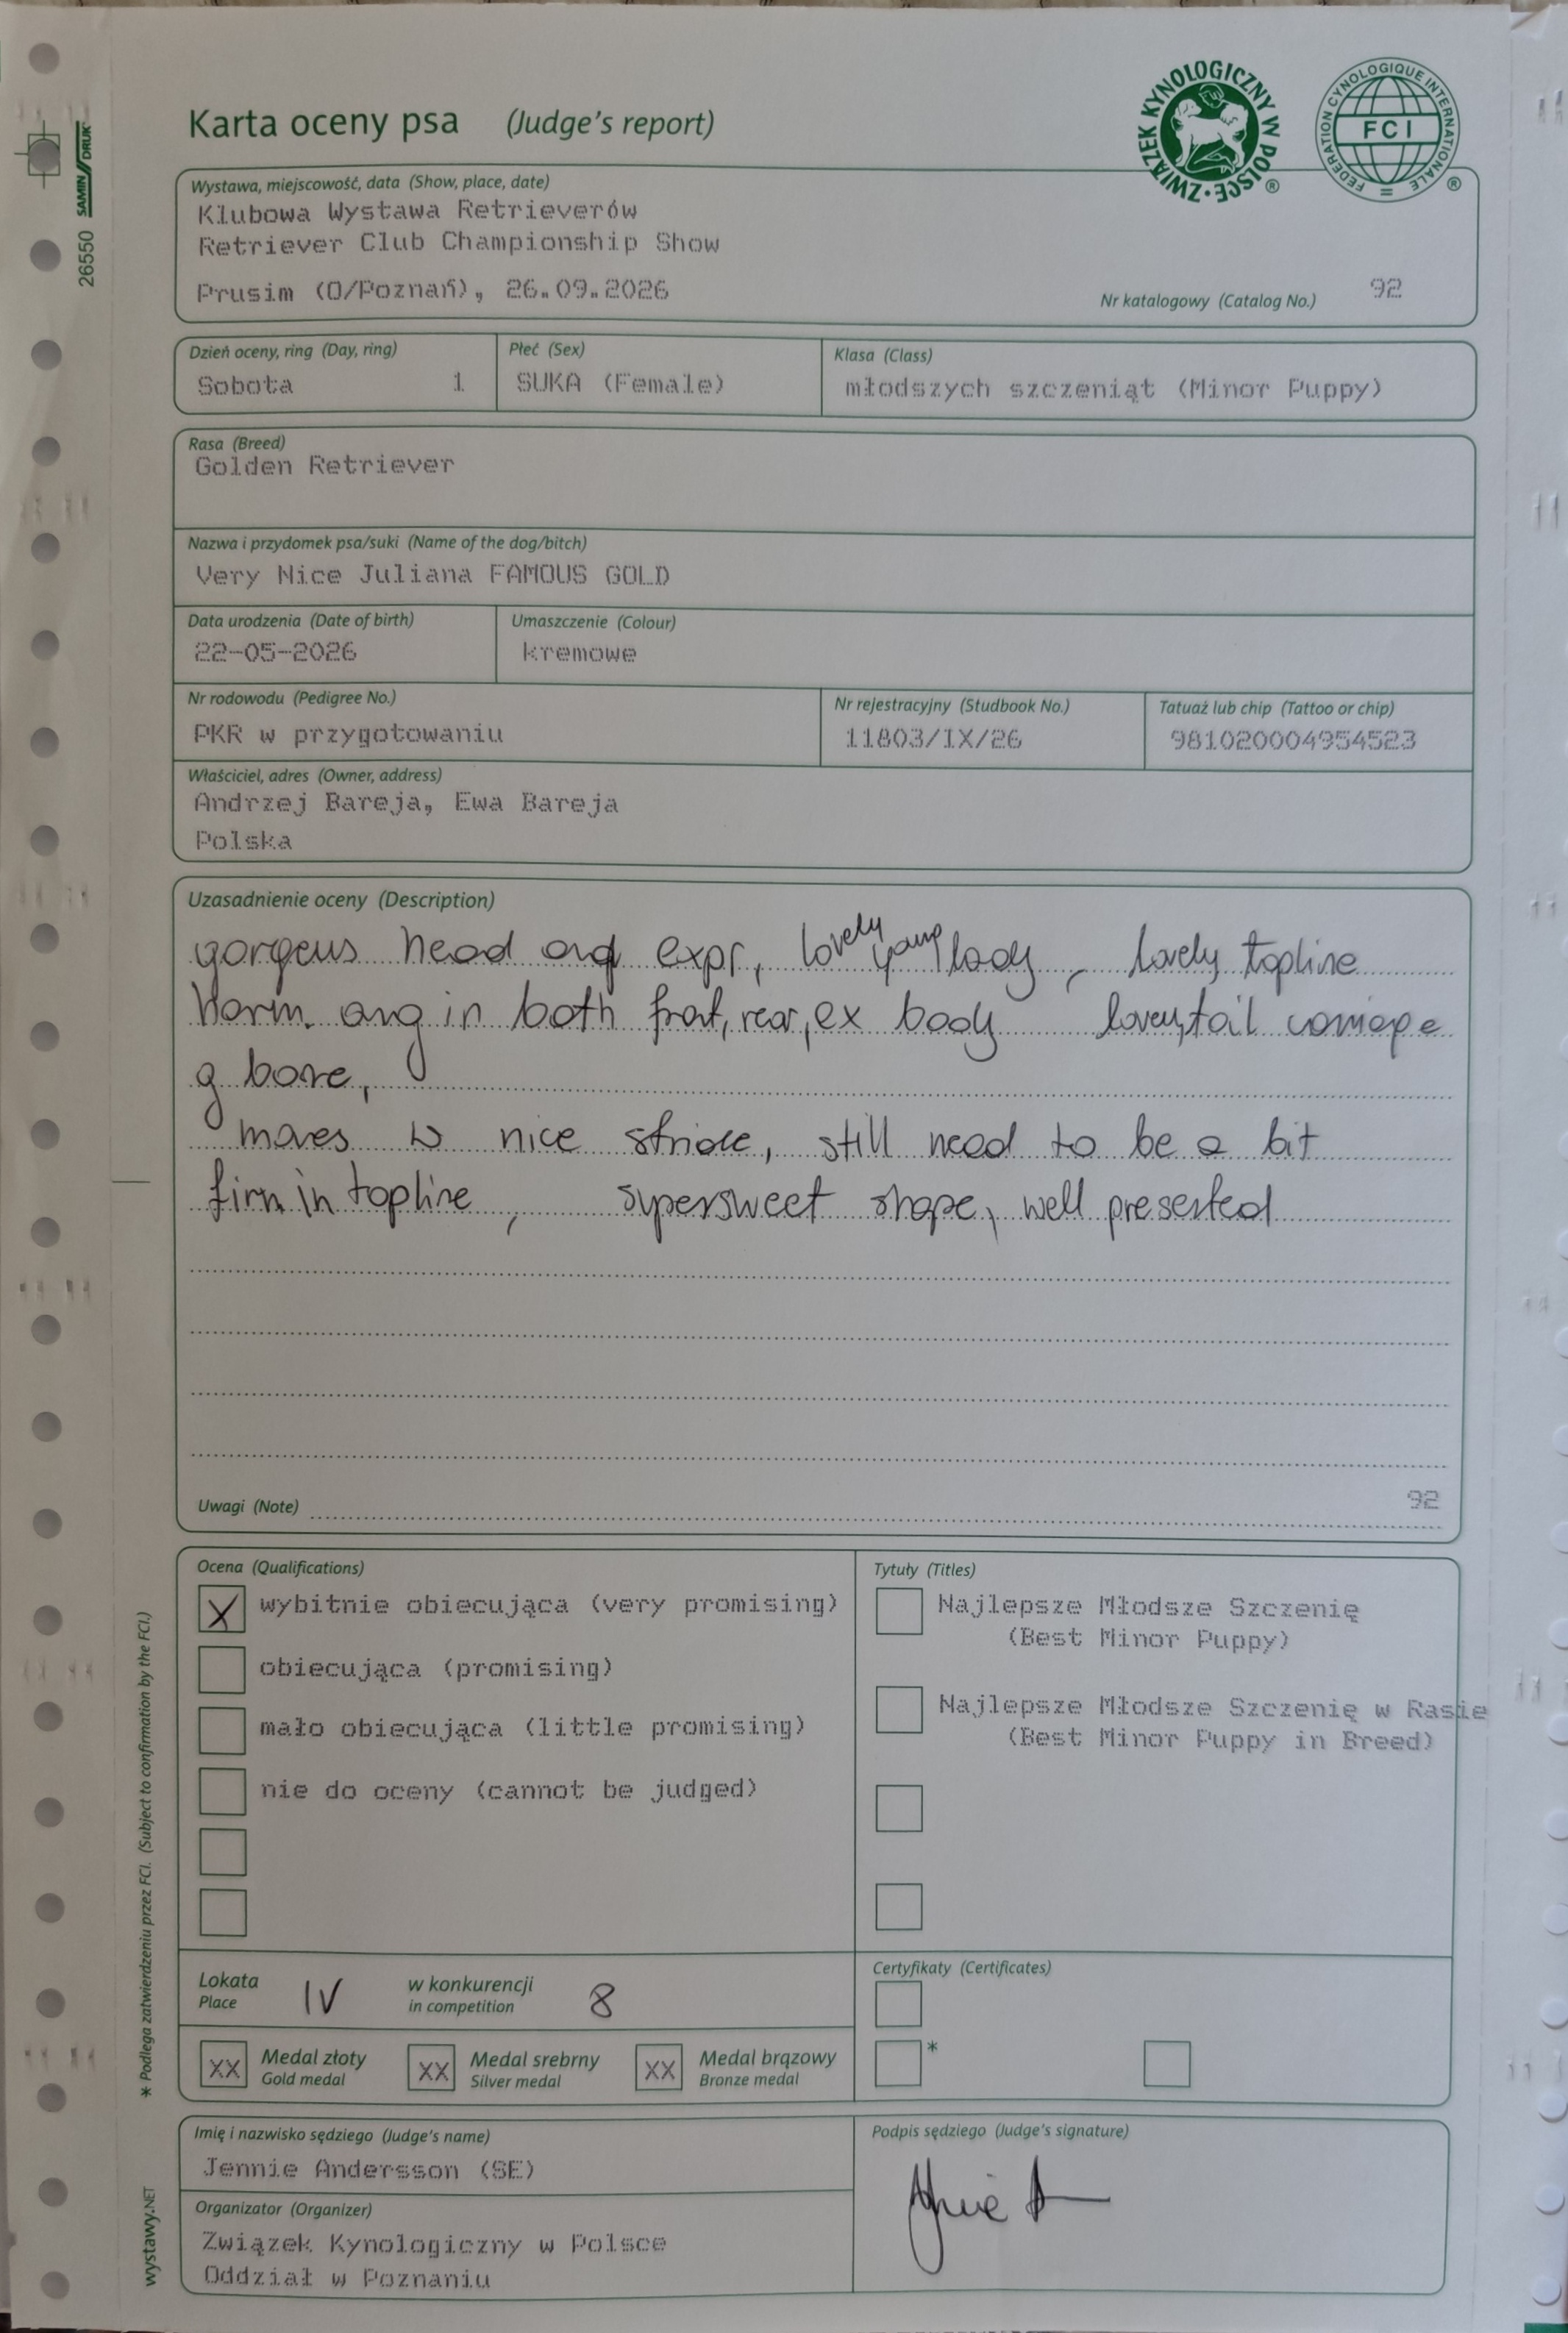 Karta oceny psa (Judge's report)
ZWIĄZEK KYNOLOGICZNY W POLSCE ®
FEDERATION CYNOLOGIQUE INTERNATIONALE FCI ®
26550 SAMIN/DRUK
Wystawa, miejscowość, data (Show, place, date)
Klubowa Wystawa Retrieverów
Retriever Club Championship Show
Prusim (O/Poznań), 26.09.2026
Nr katalogowy (Catalog No.) 92
Dzień oceny, ring (Day, ring) Płeć (Sex) Klasa (Class)
Sobota 1 SUKA (Female) młodszych szczeniąt (Minor Puppy)
Rasa (Breed)
Golden Retriever
Nazwa i przydomek psa/suki (Name of the dog/bitch)
Very Nice Juliana FAMOUS GOLD
Data urodzenia (Date of birth) Umaszczenie (Colour)
22-05-2026 kremowe
Nr rodowodu (Pedigree No.) Nr rejestracyjny (Studbook No.) Tatuaż lub chip (Tattoo or chip)
PKR w przygotowaniu 11803/IX/26 981020004954523
Właściciel, adres (Owner, address)
Andrzej Bareja, Ewa Bareja
Polska
Uzasadnienie oceny (Description)
gorgeus head and expr, lovely young lady, lovely topline
Harm. ang in both front, rear, ex body lovely tail
g bone,
moves w nice stride, still need to be a bit
firm in topline, supersweet shape, well presented
Uwagi (Note) 92
Ocena (Qualifications)
X wybitnie obiecująca (very promising)
obiecująca (promising)
mało obiecująca (little promising)
nie do oceny (cannot be judged)
Tytuły (Titles)
Najlepsze Młodsze Szczenię
(Best Minor Puppy)
Najlepsze Młodsze Szczenię w Rasie
(Best Minor Puppy in Breed)
Lokata IV w konkurencji 8
Place in competition
XX Medal złoty XX Medal srebrny XX Medal brązowy
Gold medal Silver medal Bronze medal
Certyfikaty (Certificates)
*
Imię i nazwisko sędziego (Judge's name)
Jennie Andersson (SE)
Organizator (Organizer)
Związek Kynologiczny w Polsce
Oddział w Poznaniu
Podpis sędziego (Judge's signature)
* Podlega zatwierdzeniu przez FCI. (Subject to confirmation by the FCI.)
wystawy.NET